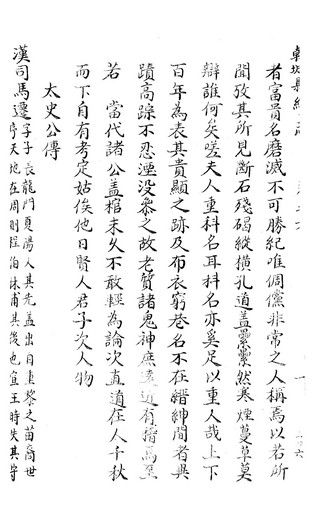 韓城縣續志
者富貴名磨滅不可勝紀唯倜儻非常之人稱焉以若所
聞攷其所見斷石殘碣縱橫孔道盖纍纍然寒煙蔓草莫
辯誰何矣嗟夫人重科名耳科名亦奚足以重人哉上下
百年為表其貴顯之跡及布衣窮巷名不在縉紳間者與
蹟高踪不忍湮没叅之故老質諸鬼神庶遠近有稽焉至
若 當代諸公盖棺未久不敢輕為論次直道在人千秋
而下自有考定姑俟他日賢人君子次人物
太史公傳
漢司馬遷字子長龍門夏陽人其先盖出自重黎之苗裔世
序天地在周則程伯休甫其後也宣王時失其守